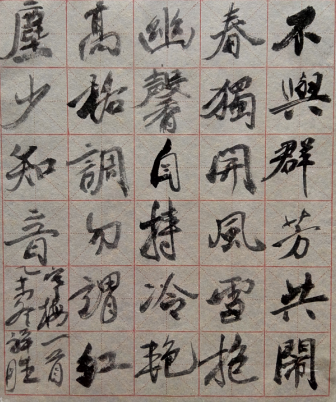 不與群芳共鬧
春獨開風雪抱
幽馨自持冷艳
高格調勿謂紅
塵少知音
梅一首